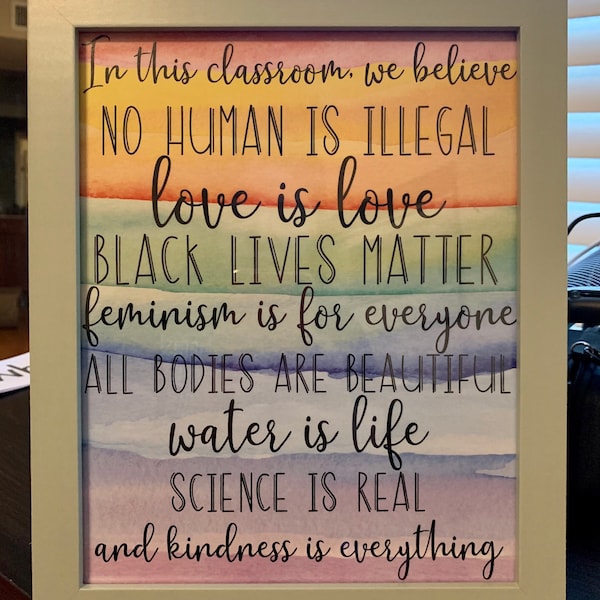 In this classroom, we believe
NO HUMAN IS ILLEGAL
love is love
BLACK LIVES MATTER
feminism is for everyone
ALL BODIES ARE BEAUTIFUL
water is life
SCIENCE IS REAL
and kindness is everything